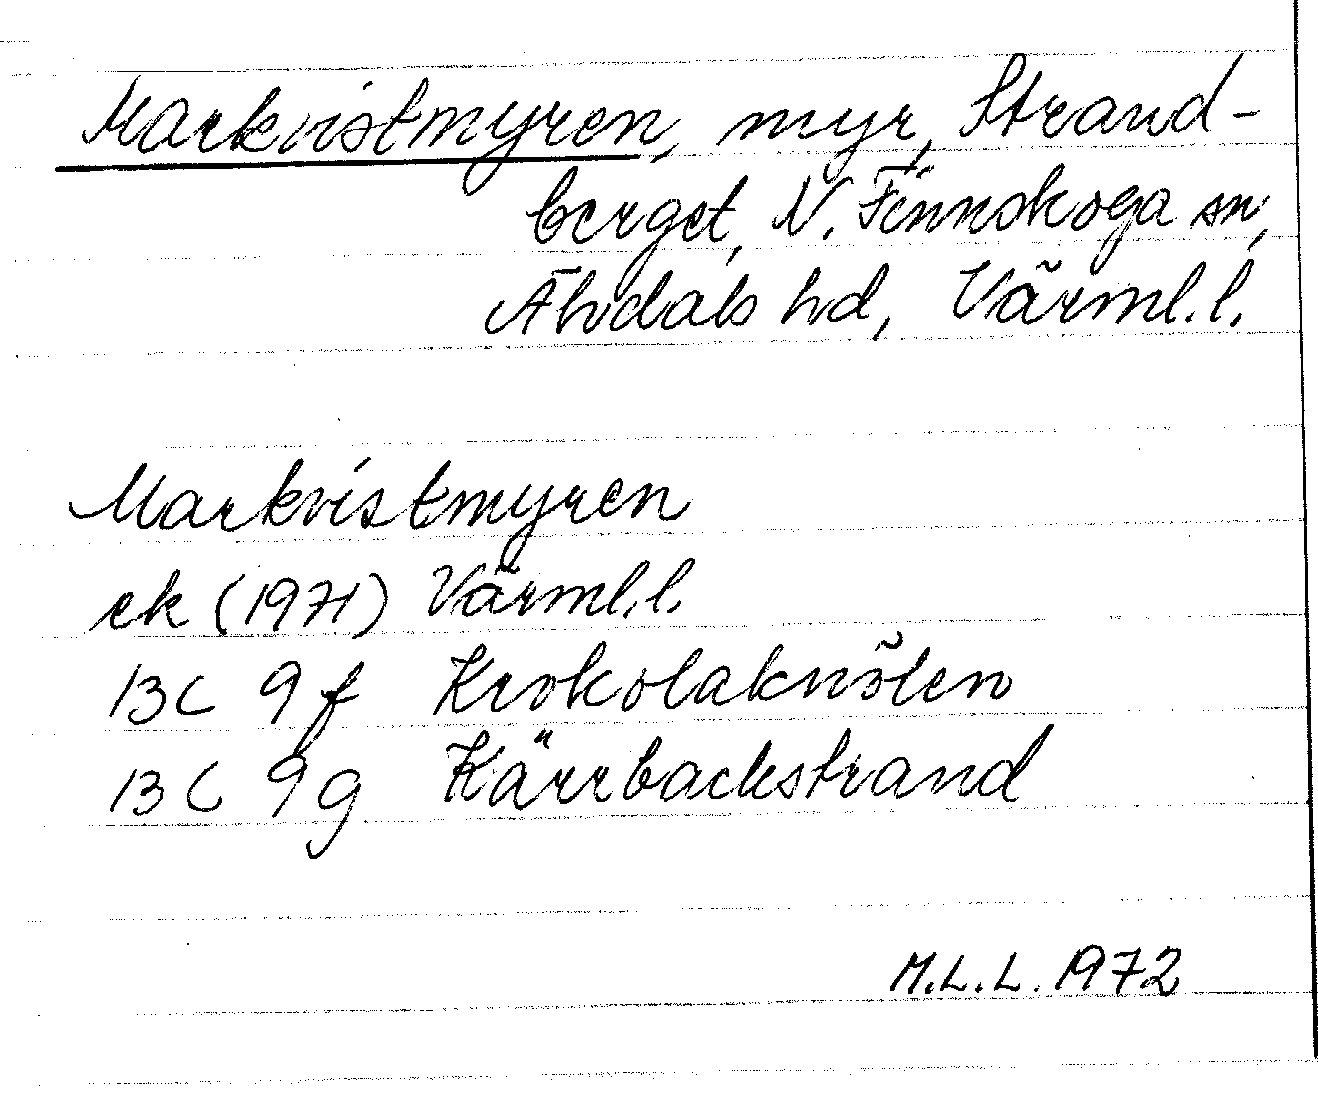 Markvistmyren, myr, Strand-
berget, N. Finnskoga sn,
Älvdals hd, Värml.l.
Markvistmyren
ek (1971) Värml.l.
13C 9f Krokolaknölen
13C 9g Kärrbackstrand
M.L.L. 1972